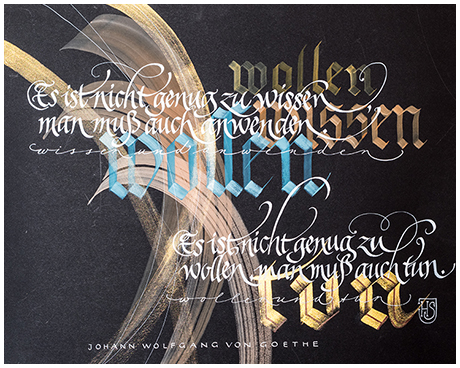 wollen
wissen
Es ist nicht genug zu wissen,
man muß auch anwenden.
wissen und anwenden
wollen
Es ist nicht genug zu
wollen, man muß auch tun.
wollen und tun
tun
JOHANN WOLFGANG VON GOETHE